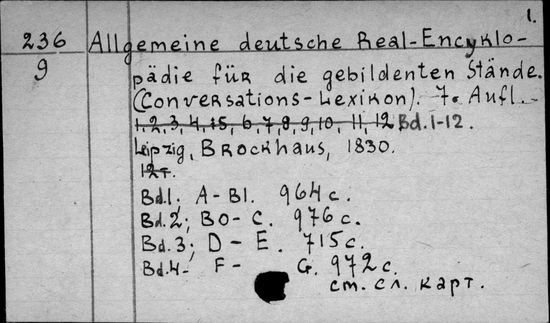 1.
236 Allgemeine deutsche Real-Encyklo-
9 pädie für die gebildenten Stände.
(Conversations-Lexikon). 7. Aufl.-
1, 2, 3, 4, 5, 6, 7, 8, 9, 10, 11, 12 Bd. 1-12.
Leipzig, Brockhaus, 1830.
12т.
Bd.1; A-Bl. 964 с.
Bd.2; Bo-C. 976 с.
Bd.3; D-E. 715 с.
Bd.4- F- G. 972 с.
см. сл. карт.